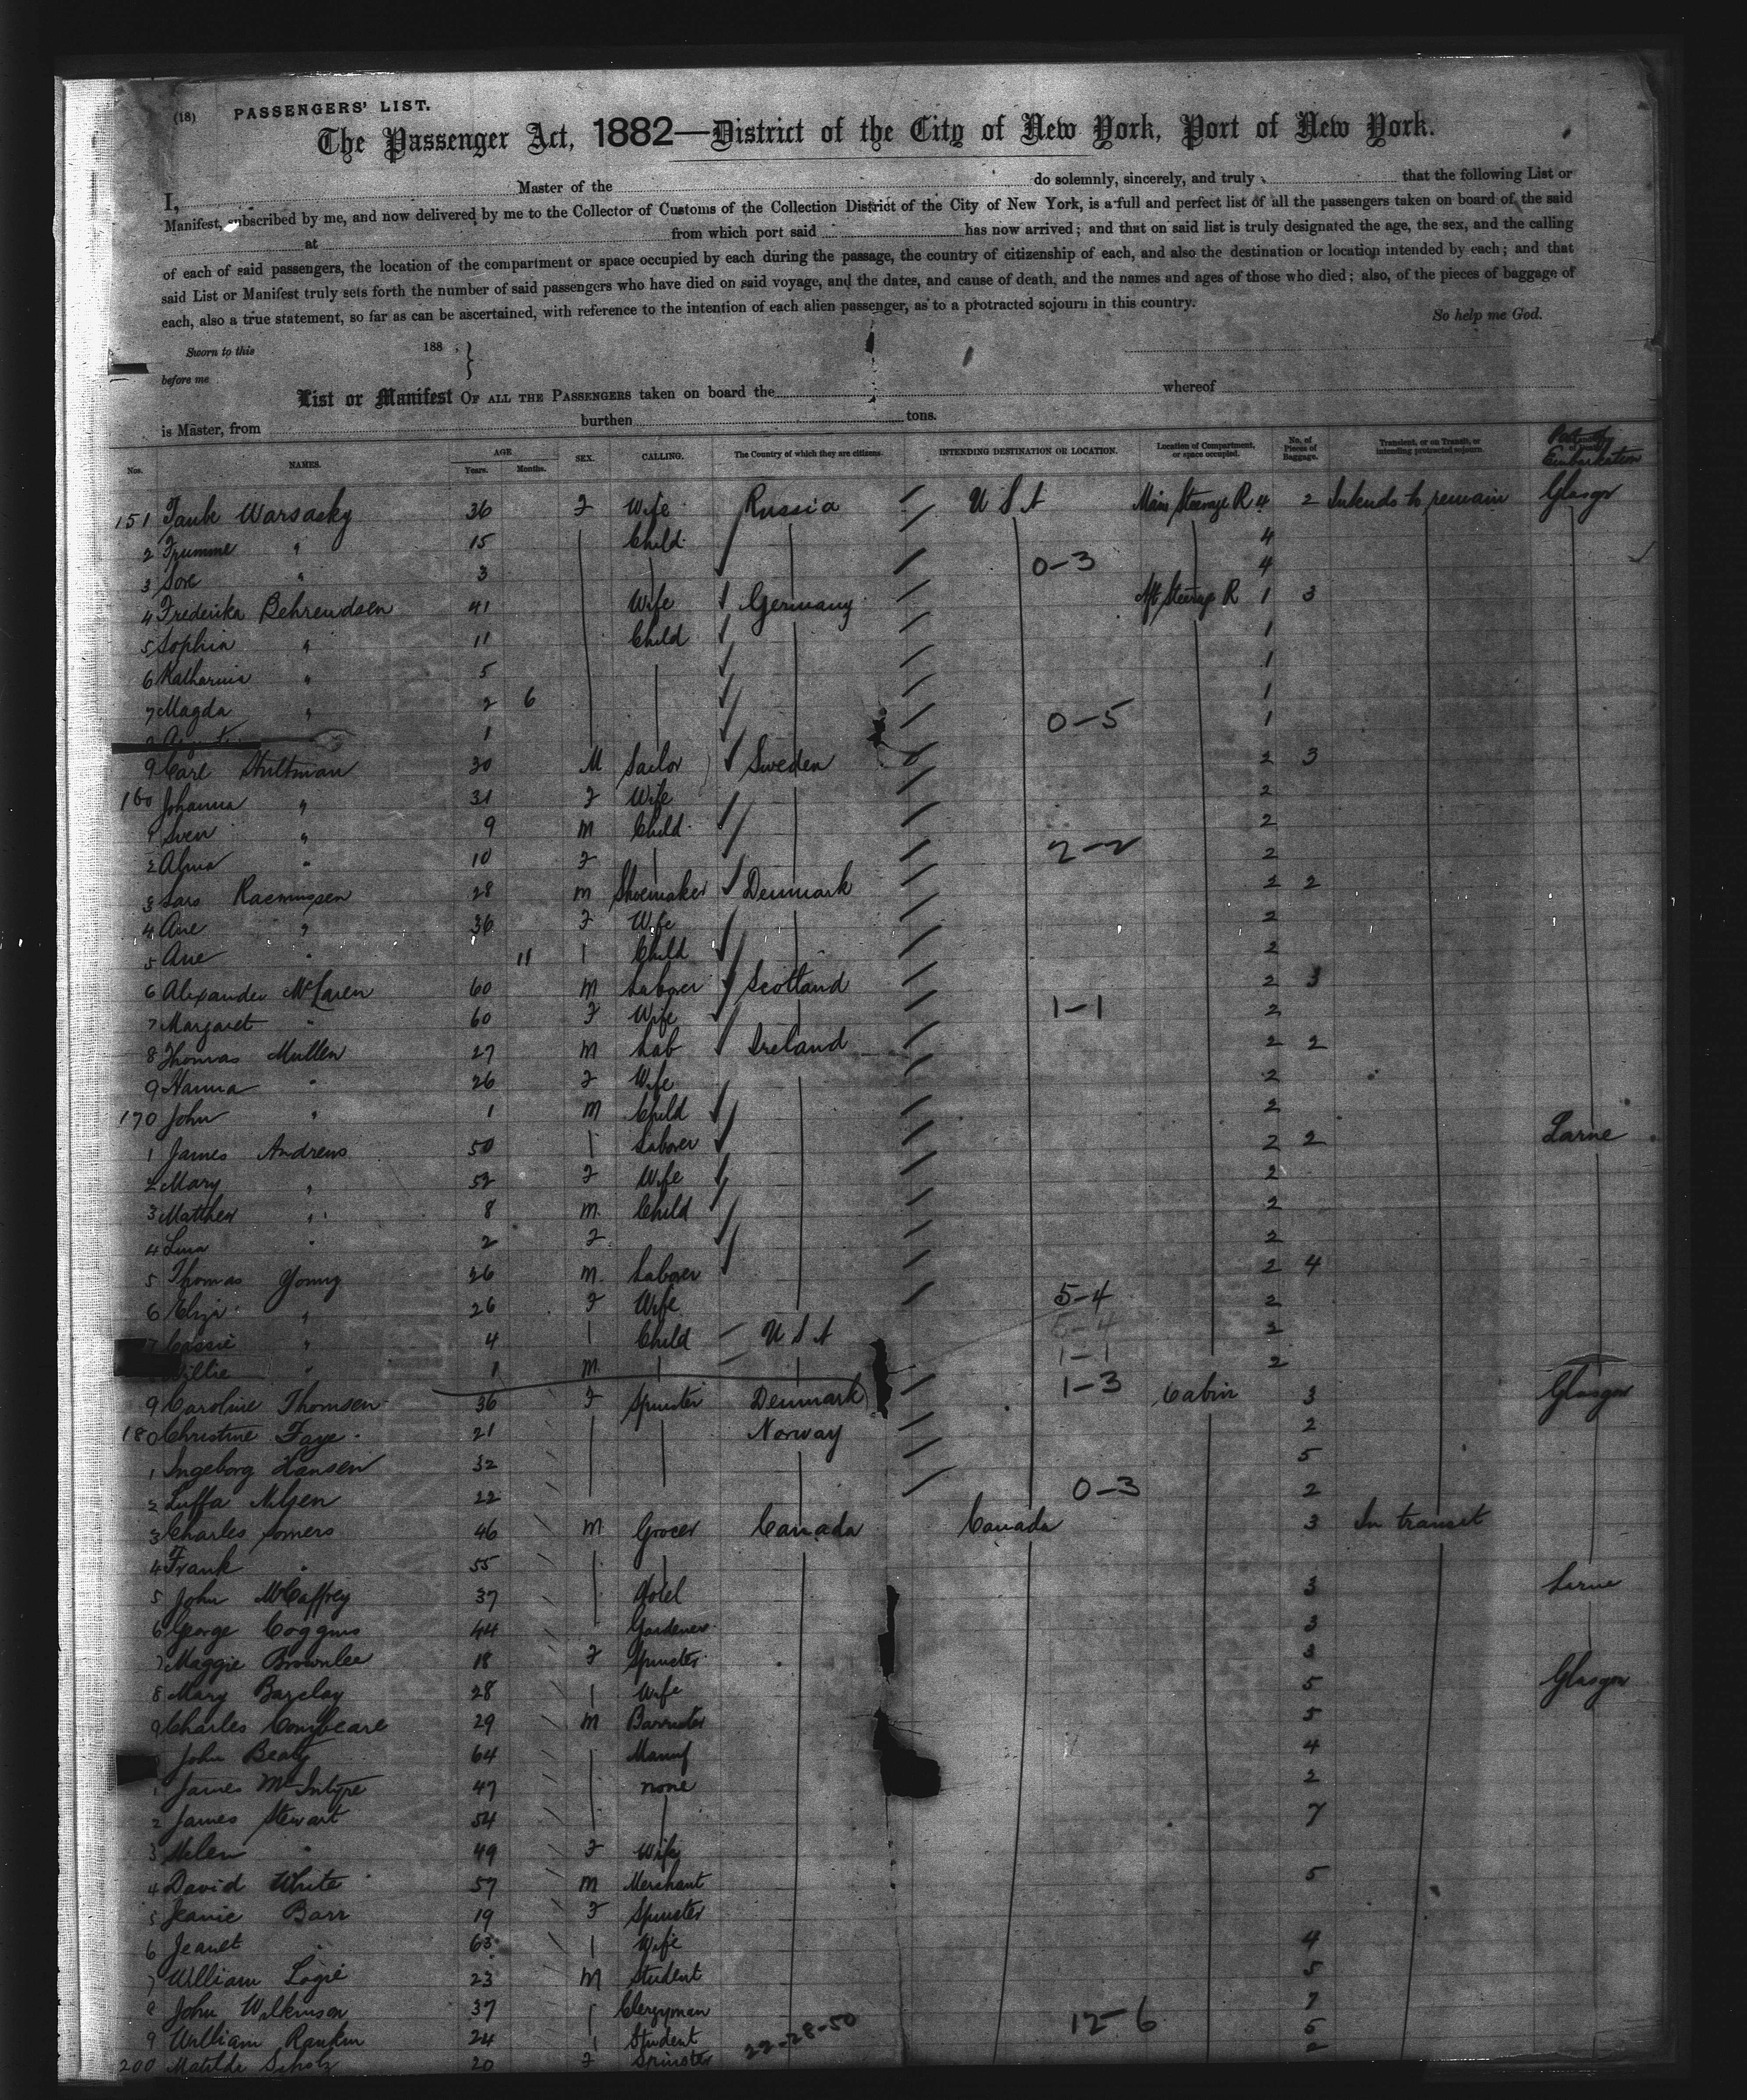 (18) PASSENGERS' LIST.
The Passenger Act, 1882—District of the City of New York, Port of New York.
I, Master of the do solemnly, sincerely, and truly that the following List or
Manifest, subscribed by me, and now delivered by me to the Collector of Customs of the Collection District of the City of New York, is a full and perfect list of all the passengers taken on board of the said
at from which port said has now arrived; and that on said list is truly designated the age, the sex, and the calling
of each of said passengers, the location of the compartment or space occupied by each during the passage, the country of citizenship of each, and also the destination or location intended by each; and that
said List or Manifest truly sets forth the number of said passengers who have died on said voyage, and the dates, and cause of death, and the names and ages of those who died; also, of the pieces of baggage of
each, also a true statement, so far as can be ascertained, with reference to the intention of each alien passenger, as to a protracted sojourn in this country. So help me God.
Sworn to this 188 , }
before me
List or Manifest OF ALL THE PASSENGERS taken on board the whereof
is Master, from burthen tons.
Nos. NAMES. AGE Years. Months. SEX. CALLING. The Country of which they are citizens. INTENDING DESTINATION OR LOCATION. Location of Compartment, or space occupied. No. of Pieces of Baggage. Transient, or on Transit, or intending protracted sojourn. Embarkation
151 Warsasky 36 F Wife Russia U S A Main Steerage R 4 2 Intends to remain Glasgow
2 Frumme " 15 Child 4
3 Sore " 3 0-3 4
4 Frederika Behrendsen 41 Wife Germany Aft Steerage R 1 3
5 Sophia " 11 Child 1
6 Katharina " 5 1
7 Magda " 2 6 1
1 0-5 1
9 Carl Hultman 30 M Sailor Sweden 2 3
160 Johanna " 31 F Wife 2
1 Sven " 9 M Child 2
2 Alma " 10 F 2-2 2
3 Lars Rasmussen 28 M Shoemaker Denmark 2 2
4 Ane " 36 F Wife 2
5 Ane " 11 Child 2
6 Alexander McLaren 60 M Laborer Scotland 2 3
7 Margaret " 60 F Wife 1-1 2
8 Thomas Mullen 27 M Lab Ireland 2 2
9 Hanna " 26 F Wife 2
170 John " 1 M Child 2
1 James Andrews 50 Laborer 2 2 Larne
2 Mary " 52 F Wife 2
3 Matthew " 8 M. Child 2
4 Lina " 2 F 2
5 Thomas Young 26 M. Laborer 2 4
6 Eliza " 26 F Wife 5-4 2
7 Cassie " 4 Child U S A 5-4 2
Willie " 1 M 1-1 2
9 Caroline Thomsen 36 F Spinster Denmark 1-3 Cabin 3 Glasgow
180 Christine Faye 21 Norway 2
1 Ingeborg Hansen 32 5
2 Luffa Nilsen 22 0-3 2
3 Charles Somers 46 M Grocer Canada Canada 3 In transit
4 Frank " 55
5 John McCaffrey 37 Hotel 3 Larne
6 George Coggins 44 Gardener 3
7 Maggie Brownlee 18 F Spinster 3
8 Mary Barclay 28 Wife 5 Glasgow
9 Charles Conybeare 29 M Barrister 5
John Beaty 64 Manuf 4
1 James McIntyre 47 none 2
2 James Stewart 54 7
3 Helen " 49 F Wife
4 David White 57 M Merchant 5
5 Jeanie Barr 19 F Spinster
6 Jeanet " 63 Wife 4
7 William Logie 23 M Student 5
8 John Wilkinson 37 Clergyman 7
9 William Rankin 24 Student 22-28-50 12-6 5
200 Matilda Scholz 20 F Spinster 2